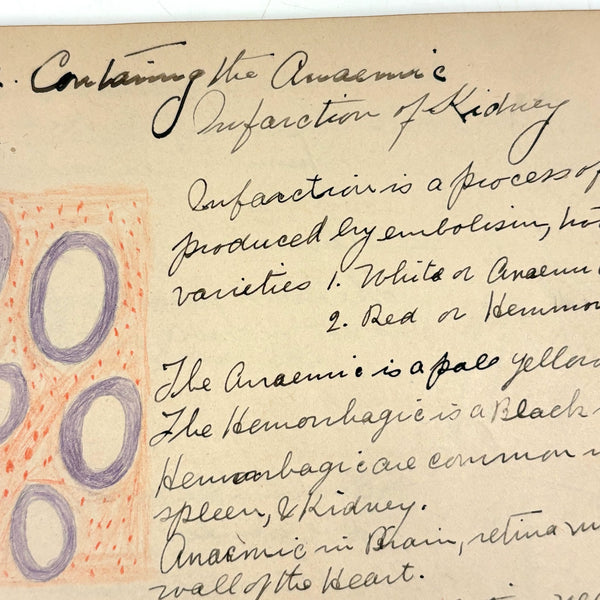 . Containing the Anaemic
Infarction of Kidney
Infarction is a process of
produced by embolism,
varieties 1. White or Anaemic
2. Red or Hemmor
The Anaemic is a pale yellow
The Hemorrhagic is a Black
Hemorrhagic are common
spleen, & Kidney.
Anaemic in Brain, retina
wall of the Heart.